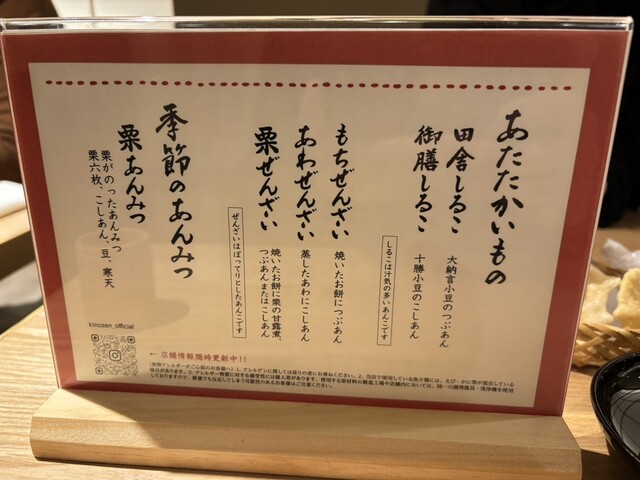 あたたかいもの
田舎しるこ 大納言小豆のつぶあん
御膳しるこ 十勝小豆のこしあん
しるこは汁気の多いあんこです
もちぜんざい 焼いたお餅につぶあん
あわぜんざい 蒸したあわにこしあん
栗ぜんざい 焼いたお餅に栗の甘露煮、
つぶあんまたはこしあん
ぜんざいはぽってりとしたあんこです
季節のあんみつ
栗あんみつ
栗がのったあんみつ
栗六枚、こしあん、豆、寒天
kinozen_official
← 店舗情報随時更新中!!